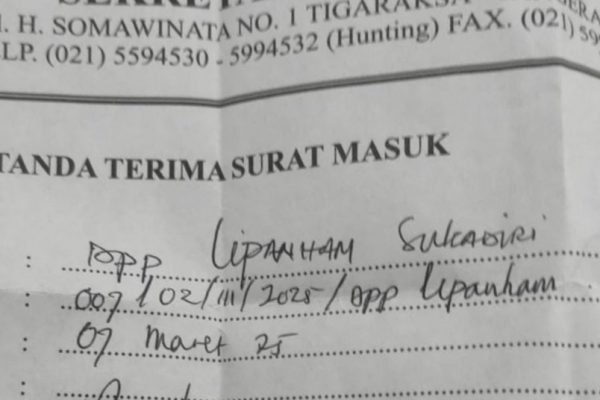 H. SOMAWINATA NO. 1 TIGARAKSA
LP. (021) 5594530 - 5994532 (Hunting) FAX. (021)
TANDA TERIMA SURAT MASUK
: DPP LIPANHAM SUKADIRI
: 007/02/III/2025/DPP Lipanham
: 07 Maret 25
: